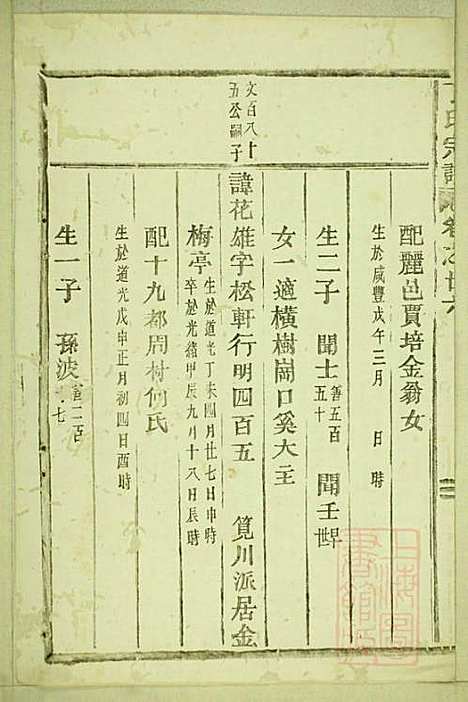 氏宗譜卷之廿六
配麗邑賈培金翁女
生於咸豐戊年三月 日 時
生二子 聞士 善五百五十 聞壬 
女一適橫樹崗口奚大主
文百八十五公嗣子
諱花雄字松軒行明四百五 筧川派居金
梅亭 生於道光丁未四月廿七日申時
卒於光緒甲辰九月十八日辰時
配十九都周村何氏
生於道光戊申正月初四日酉時
生一子 孫波 二百 七